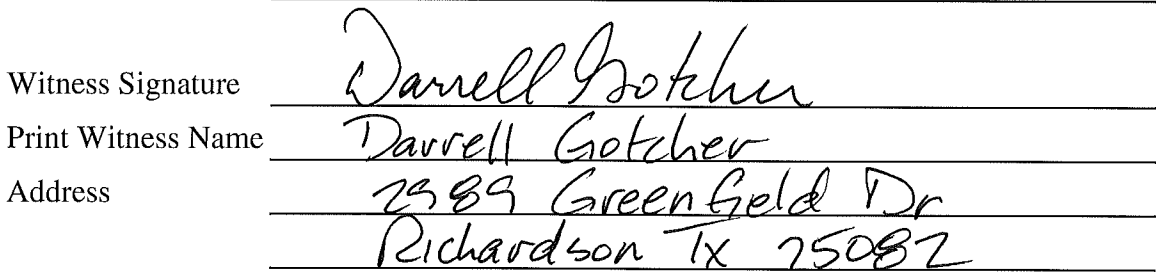 Witness Signature Darrell Gotcher
Print Witness Name Darrell Gotcher
Address 2989 Greenfield Dr
Richardson Tx 75082